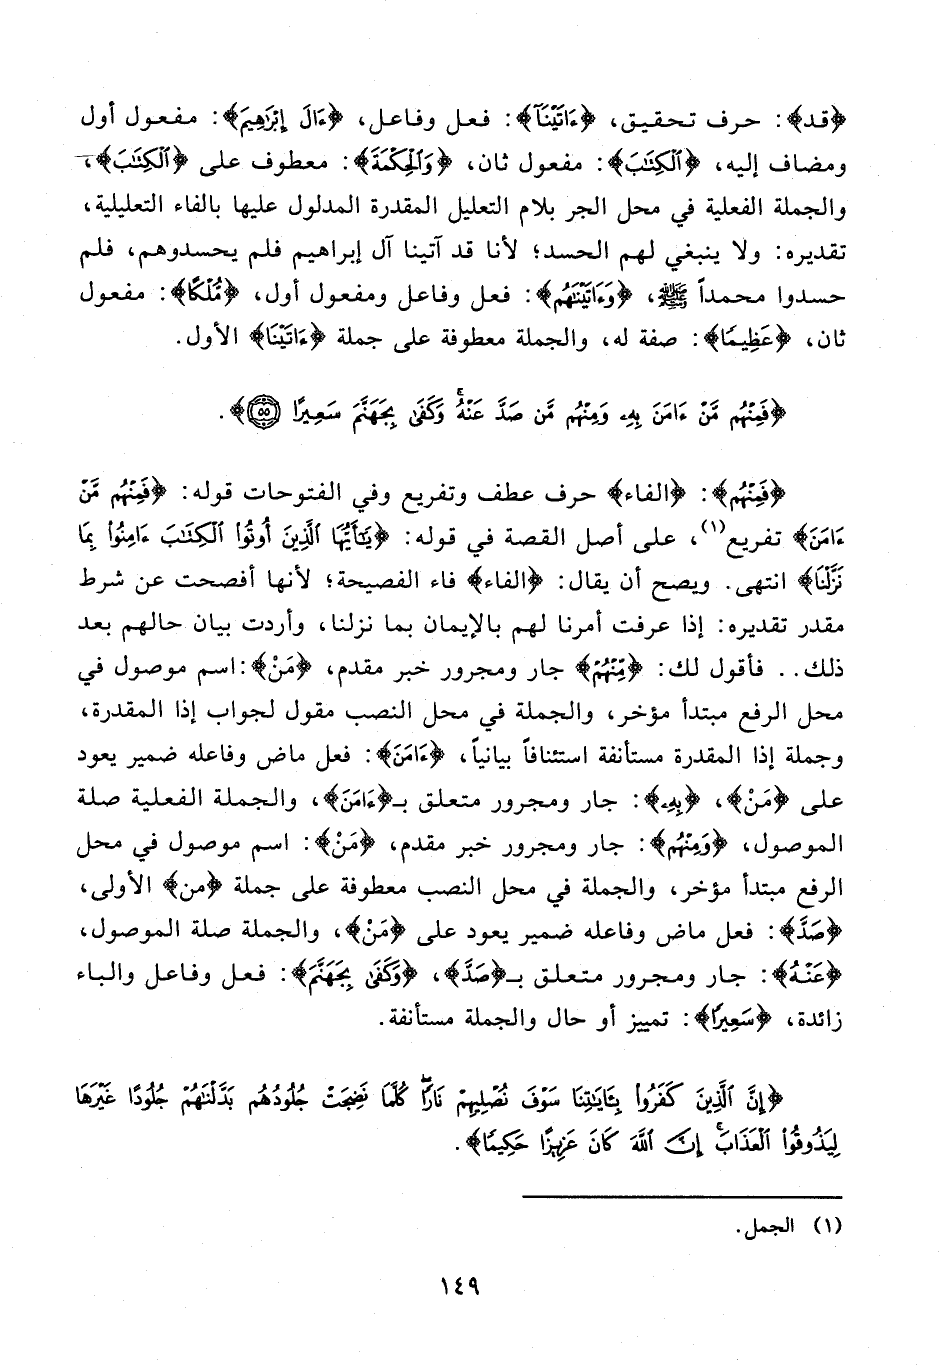 ﴿قد﴾: حرف تحقيق، ﴿ءَاتَيْنَآ﴾: فعل وفاعل، ﴿ءَالَ إِبْرَٰهِيمَ﴾: مفعول أول
ومضاف إليه، ﴿ٱلْكِتَٰبَ﴾: مفعول ثان، ﴿وَٱلْحِكْمَةَ﴾: معطوف على ﴿ٱلْكِتَٰبَ﴾،
والجملة الفعلية في محل الجر بلام التعليل المقدرة المدلول عليها بالفاء التعليلية،
تقديره: ولا ينبغي لهم الحسد؛ لأنا قد آتينا آل إبراهيم فلم يحسدوهم، فلم
حسدوا محمداً ﷺ، ﴿وَءَاتَيْنَٰهُم﴾: فعل وفاعل ومفعول أول، ﴿مُّلْكًا﴾: مفعول
ثان، ﴿عَظِيمًا﴾: صفة له، والجملة معطوفة على جملة ﴿ءَاتَيْنَا﴾ الأول.
﴿فَمِنْهُم مَّنْ ءَامَنَ بِهِۦ وَمِنْهُم مَّن صَدَّ عَنْهُ ۚ وَكَفَىٰ بِجَهَنَّمَ سَعِيرًا ۝٥٥﴾.
﴿فَمِنْهُم﴾: ﴿الفاء﴾ حرف عطف وتفريع وفي الفتوحات قوله: ﴿فَمِنْهُم مَّنْ
ءَامَنَ﴾ تفريع(١)، على أصل القصة في قوله: ﴿يَٰٓأَيُّهَا ٱلَّذِينَ أُوتُوا۟ ٱلْكِتَٰبَ ءَامِنُوا۟ بِمَا
نَزَّلْنَا﴾ انتهى. ويصح أن يقال: ﴿الفاء﴾ فاء الفصيحة؛ لأنها أفصحت عن شرط
مقدر تقديره: إذا عرفت أمرنا لهم بالإيمان بما نزلنا، وأردت بيان حالهم بعد
ذلك.. فأقول لك: ﴿مِّنْهُمْ﴾ جار ومجرور خبر مقدم، ﴿مَنْ﴾: اسم موصول في
محل الرفع مبتدأ مؤخر، والجملة في محل النصب مقول لجواب إذا المقدرة،
وجملة إذا المقدرة مستأنفة استئنافاً بيانياً، ﴿ءَامَنَ﴾: فعل ماض وفاعله ضمير يعود
على ﴿مَنْ﴾، ﴿بِهِۦ﴾: جار ومجرور متعلق بـ﴿ءَامَنَ﴾، والجملة الفعلية صلة
الموصول، ﴿وَمِنْهُم﴾: جار ومجرور خبر مقدم، ﴿مَنْ﴾: اسم موصول في محل
الرفع مبتدأ مؤخر، والجملة في محل النصب معطوفة على جملة ﴿من﴾ الأولى،
﴿صَدَّ﴾: فعل ماض وفاعله ضمير يعود على ﴿مَنْ﴾، والجملة صلة الموصول،
﴿عَنْهُ﴾: جار ومجرور متعلق بـ﴿صَدَّ﴾، ﴿وَكَفَىٰ بِجَهَنَّمَ﴾: فعل وفاعل والباء
زائدة، ﴿سَعِيرًا﴾: تمييز أو حال والجملة مستأنفة.
﴿إِنَّ ٱلَّذِينَ كَفَرُوا۟ بِـَٔايَٰتِنَا سَوْفَ نُصْلِيهِمْ نَارًا كُلَّمَا نَضِجَتْ جُلُودُهُم بَدَّلْنَٰهُمْ جُلُودًا غَيْرَهَا
لِيَذُوقُوا۟ ٱلْعَذَابَ ۗ إِنَّ ٱللَّهَ كَانَ عَزِيزًا حَكِيمًا﴾.
(١) الجمل.
١٤٩